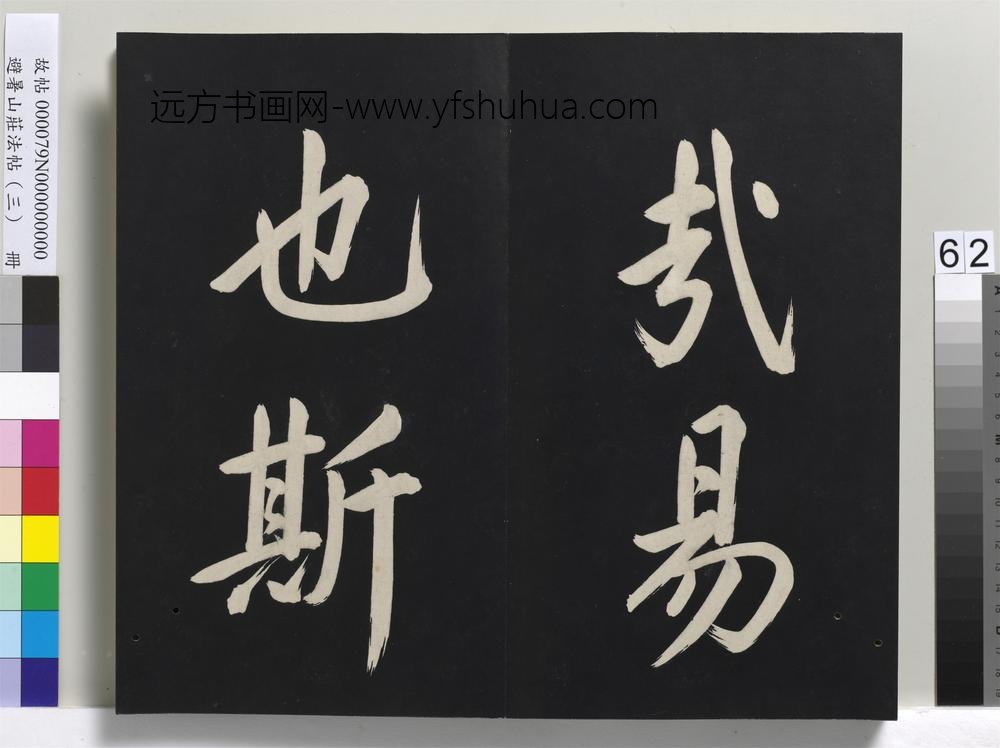 远方书画网-www.yfshuhua.com
故帖 000079N000000000
避暑山莊法帖(三) 冊
62
哉易
也斯